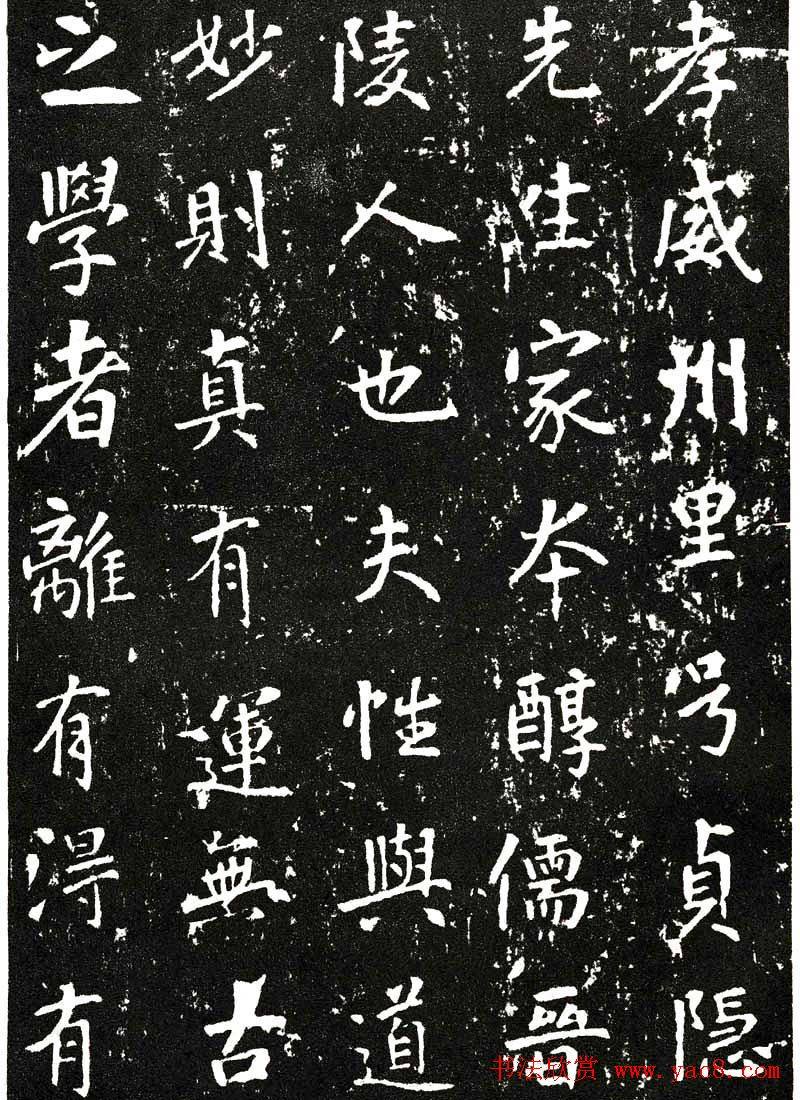 孝威州里号貞隐
先生家本醇儒晉
陵人也夫性與道
妙則真有運無古
之學者離有得有
书法欣赏 www.yac8.com